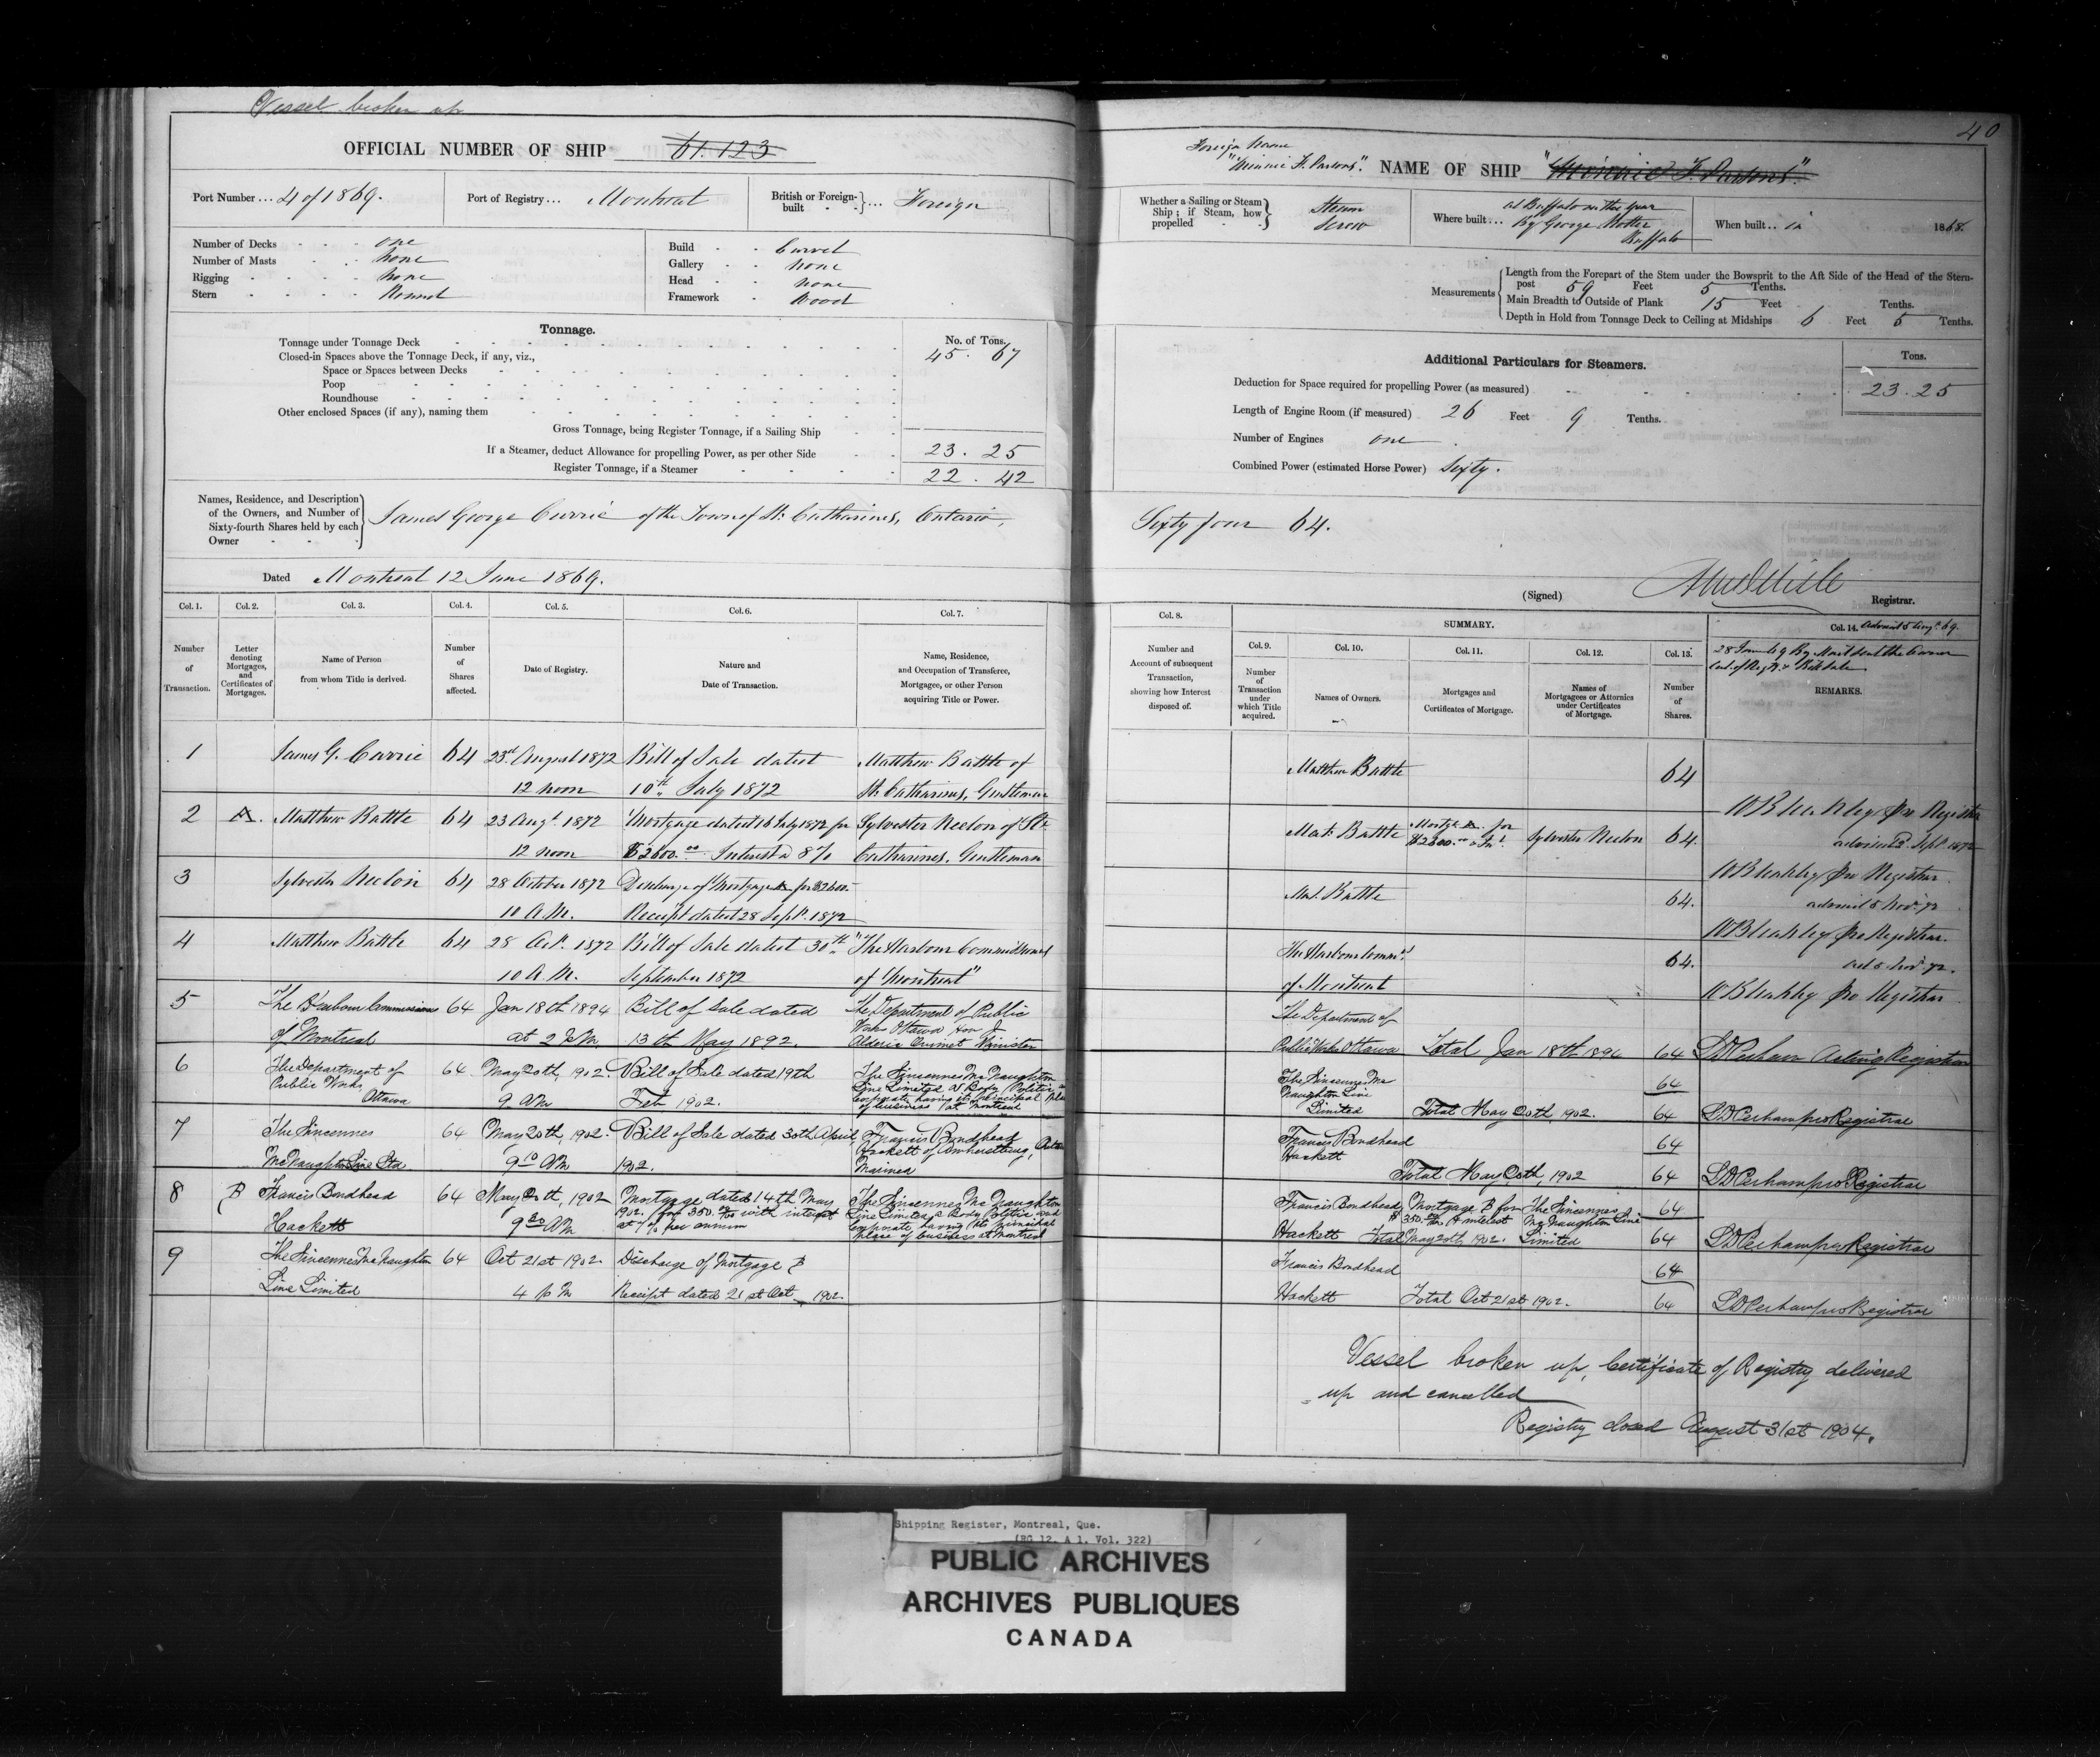 Vessel broken up
OFFICIAL NUMBER OF SHIP 61.123
Port Number ... 4 of 1869. Port of Registry ... Montreal British or Foreign-built ... Foreign
Number of Decks one
Number of Masts None
Rigging None
Stern Round
Build Carvel
Gallery None
Head none
Framework Wood
Tonnage.
No. of Tons.
Tonnage under Tonnage Deck 45. 67
Closed-in Spaces above the Tonnage Deck, if any, viz.,
Space or Spaces between Decks
Poop
Roundhouse
Other enclosed Spaces (if any), naming them
Gross Tonnage, being Register Tonnage, if a Sailing Ship
If a Steamer, deduct Allowance for propelling Power, as per other Side 23. 25
Register Tonnage, if a Steamer 22. 42
Names, Residence, and Description
of the Owners, and Number of
Sixty-fourth Shares held by each
Owner
James George Currie of the Town of St. Catharines, Ontario,
Dated Montreal 12 June 1869.
Col. 1. Col. 2. Col. 3. Col. 4. Col. 5. Col. 6. Col. 7.
Number of Transaction.
Letter denoting Mortgages, and Certificates of Mortgages.
Name of Person from whom Title is derived.
Number of Shares affected.
Date of Registry.
Nature and Date of Transaction.
Name, Residence, and Occupation of Transferee, Mortgagee, or other Person acquiring Title or Power.
1 James G. Currie 64 23rd August 1872 Bill of Sale dated Matthew Battle of
12 noon 10th July 1872 St. Catharines, Gentleman
2 A. Matthew Battle 64 23 Augt. 1872 Mortgage dated 16 July 1872 for Sylvester Neelon of St.
12 noon $2600.00 Interest @ 8% Catharines, Gentleman
3 Sylvester Neelon 64 28 October 1872 Discharge of Mortgage A for $2600.-
10 A.M. Receipt dated 28 Sept. 1872
4 Matthew Battle 64 28 Oct. 1872 Bill of Sale dated 30th "The Harbour Commissioners
10 A.M. September 1872 of Montreal"
5 The Harbour Commissioners 64 Jan 18th 1894 Bill of Sale dated The Department of Public
of Montreal at 2 P.M. 13th May 1892. Works Ottawa Hon J
Alderic Ouimet Minister
6 The Department of 64 May 20th, 1902. Bill of Sale dated 19th The Sincennes McNaughton
Public Works, Line Limited A Body Politic &
Ottawa 9 AM Feb 1902. Corporate, having its principal place
of business at Montreal
7 The Sincennes 64 May 20th, 1902. Bill of Sale dated 30th April, Francis Bondhead
Hackett of Amherstburg, Ont
McNaughton Line Ltd 9 10 AM 1902. Mariner
8 B Francis Bondhead 64 May 20th, 1902 Mortgage dated 14th May The Sincennes McNaughton
1902. for 350.00 with interest Line Limited, a Body Politic and
Hackett 9 20 AM at 7% per annum Corporate, having its principal
place of business at Montreal
9 The Sincennes McNaughton 64 Oct 21st 1902. Discharge of Mortgage B
Line Limited 4 PM Receipt dated 21st Oct, 1902.
40
Foreign Name
"Minnie F. Parsons". NAME OF SHIP "Minnie F. Parsons".
Whether a Sailing or Steam Ship; if Steam, how propelled Steam Screw
Where built ... at Buffalo in the year
By George Notter
Buffalo
When built .. in 1868.
Measurements
Length from the Forepart of the Stem under the Bowsprit to the Aft Side of the Head of the Stern-
post 59 Feet 5 Tenths.
Main Breadth to Outside of Plank 15 Feet Tenths.
Depth in Hold from Tonnage Deck to Ceiling at Midships 6 Feet 5 Tenths.
Additional Particulars for Steamers.
Tons.
Deduction for Space required for propelling Power (as measured) 23.25
Length of Engine Room (if measured) 26 Feet 9 Tenths.
Number of Engines one
Combined Power (estimated Horse Power) Sixty.
Sixty four 64.
(Signed) Registrar.
Col. 8. SUMMARY. Col. 14. Advised 5 Augt. 69.
Col. 9. Col. 10. Col. 11. Col. 12. Col. 13.
Number and Account of subsequent Transaction, showing how Interest disposed of.
Number of Transaction under which Title acquired.
Names of Owners.
Mortgages and Certificates of Mortgage.
Names of Mortgagees or Attornies under Certificates of Mortgage.
Number of Shares.
28 June 69 By Mail sent the Owner
Cert. of Regy. & Bill Sale
REMARKS.
Matthew Battle 64
WBleakley pro Registrar
Mat. Battle Mortge A. for Sylvester Neelon 64.
$2600.00 & Int. advised 2. Sept. 1872
WBleakley pro Registrar
Mat. Battle 64. advised 5 Nov. 72
WBleakley pro Registrar.
The Harbour Commrs. 64. ad 5 Nov. 72.
of Montreal WBleakley pro Registrar
The Department of
Public Works Ottawa Total Jan 18th 1894 64 Acting Registrar
The Sincennes Mc 64
Naughton Line
Limited Total May 20th, 1902. 64 pro Registrar
Francis Bondhead 64
Hackett
Total May 20th, 1902 64 pro Registrar
Francis Bondhead Mortgage B for The Sincennes 64
$350.00 & interest McNaughton Line
Hackett Total May 20th, 1902. Limited 64 pro Registrar
Francis Bondhead 64
Hackett Total Oct 21st 1902. 64 pro Registrar
Vessel broken up, Certificate of Registry delivered
up and cancelled
Registry closed August 31st 1904.
Shipping Register, Montreal, Que.
(RG 12, A 1, Vol. 322)
PUBLIC ARCHIVES
ARCHIVES PUBLIQUES
CANADA